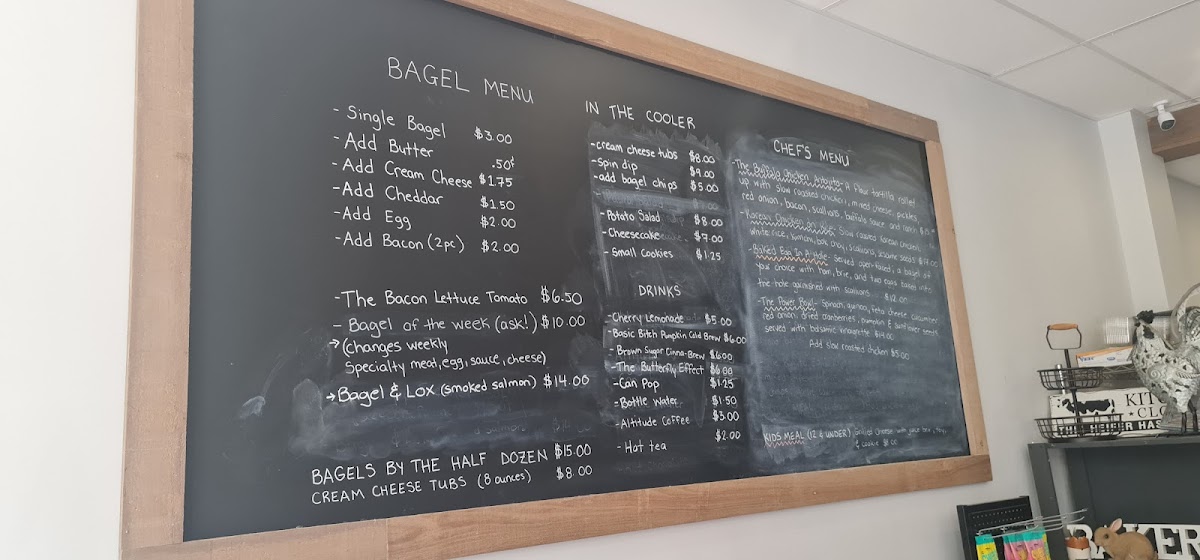 BAGEL MENU
- Single Bagel $3.00
- Add Butter .50¢
- Add Cream Cheese $1.75
- Add Cheddar $1.50
- Add Egg $2.00
- Add Bacon (2pc) $2.00
- The Bacon Lettuce Tomato $6.50
- Bagel of the week (ask!) $10.00
→ (changes weekly
Specialty meat, egg, sauce, cheese)
→ Bagel & Lox (smoked salmon) $14.00
BAGELS BY THE HALF DOZEN $15.00
CREAM CHEESE TUBS (8 ounces) $8.00
IN THE COOLER
- cream cheese tubs $8.00
- spin dip $9.00
- add bagel chips $5.00
- Potato Salad $8.00
- Cheesecake $7.00
- Small Cookies $1.25
DRINKS
- Cherry Lemonade $5.00
- Basic Bitch Pumpkin Cold Brew $6.00
- Brown Sugar Cinna-Brew $6.00
- The Butterfly Effect $6.00
- Can Pop $1.25
- Bottle Water $1.50
- Altitude Coffee $3.00
- Hot tea $2.00
CHEF'S MENU
- The Buffalo Chicken - A flour tortilla rolled
up with slow roasted chicken, mixed cheese, pickles,
red onion, bacon, scallions, buffalo sauce and ranch
- Korean Chicken Slow roasted korean chicken,
white rice, kimchi, bok choy, scallions, sesame seeds
- Baked Egg In A Hole - Served open-faced, a bagel of
your choice with ham, brie, and two eggs baked into
the hole garnished with scallions. $12.00
- The Power Bowl - Spinach, quinoa, feta cheese, cucumber
red onion, dried cranberries, pumpkin & sunflower seeds
served with balsamic vinaigrette $14.00
Add slow roasted chicken $5.00
KIDS MEAL (12 & UNDER) Grilled Cheese with juice box,
& cookie
KIT
CLO
BAKER